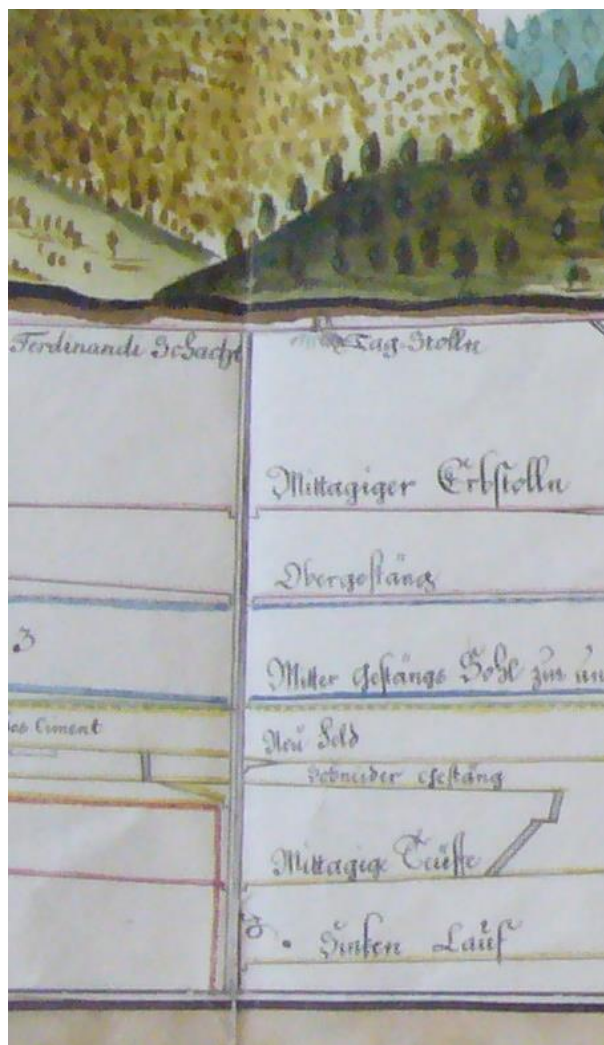 Ferdinandi Schacht
Tag-Stolln
Mittagiger Erbstolln
Obergestäng
3
Mitter Gestängs Sohl zur un
Ciment
Neu Feld
Schneider Gestäng
Mittagige Teüffe
Sinken Lauf